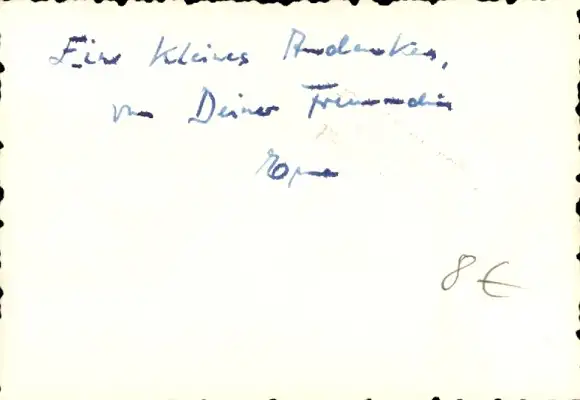 Eine kleines Andenken,
von Deiner Freundin
8 €